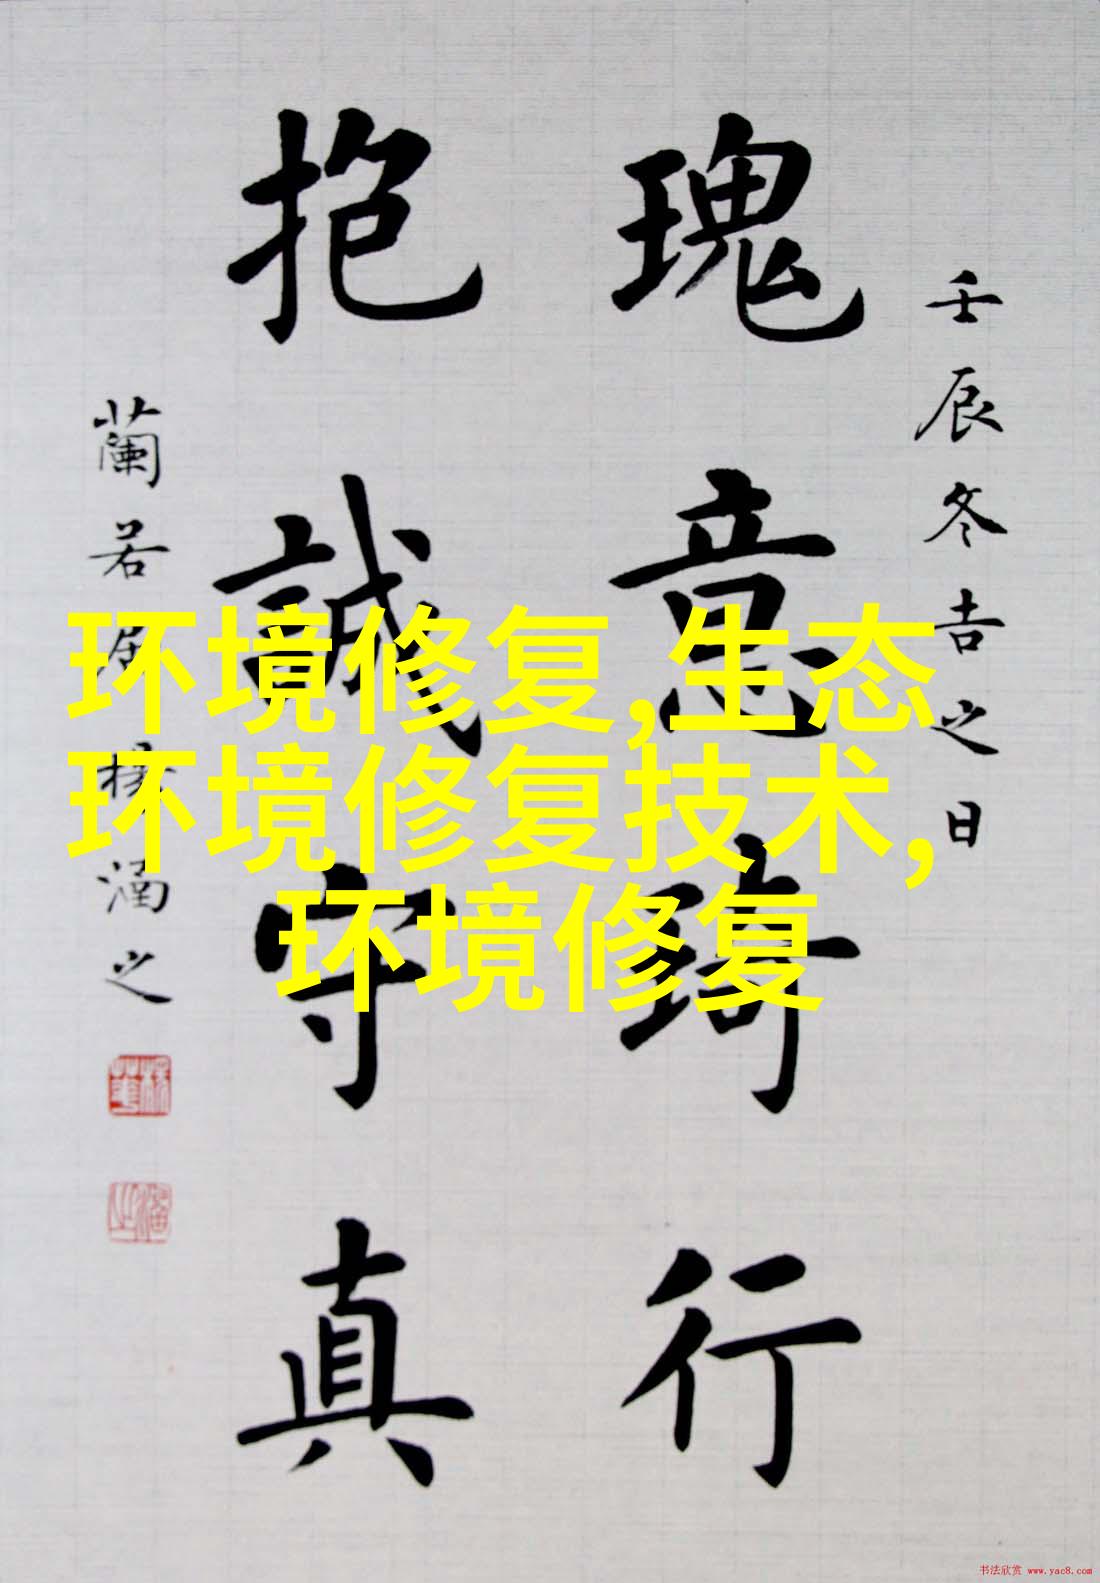 壬辰冬吉之日
瑰意琦行
抱誠守真
蘭若居楊涵之
环境修复,生态
环境修复技术,
环境修复
书法欣赏 www.yac8.com